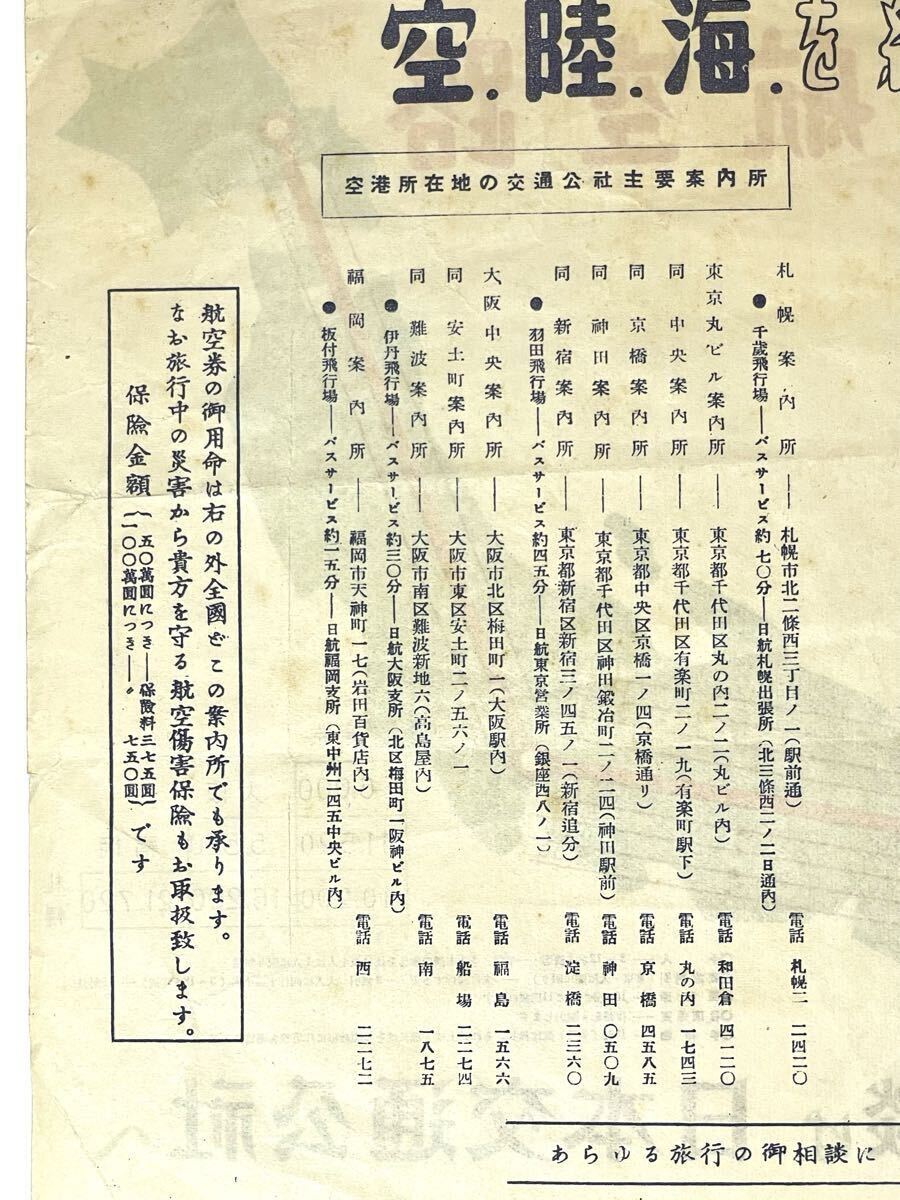 空.陸.海.を
空港所在地の交通公社主要案内所
札幌案内所――札幌市北二條西三丁目ノ一(駅前通) 電話 札幌二 二四二〇
●千歳飛行場――バスサービス約七〇分――日航札幌出張所(北三條西二ノ二日通内)
東京丸ビル案内所――東京都千代田区丸の内二ノ二(丸ビル内) 電話 和田倉 四一二〇
同 中央案内所――東京都千代田区有楽町二ノ一九(有楽町駅下) 電話 丸の内 一七四三
同 京橋案内所――東京都中央区京橋一ノ四(京橋通り) 電話 京橋 四五八五
同 神田案内所――東京都千代田区神田鍛冶町二ノ二四(神田駅前) 電話 神田 〇五〇九
同 新宿案内所――東京都新宿区新宿三ノ四五ノ一(新宿追分) 電話 淀橋 二三六〇
●羽田飛行場――バスサービス約四五分――日航東京営業所(銀座西八ノ一)
大阪中央案内所――大阪市北区梅田町一(大阪駅内) 電話 福島 一五六六
同 安土町案内所――大阪市東区安土町二ノ五六ノ一 電話 船場 二二七四
同 難波案内所――大阪市南区難波新地六(高島屋内) 電話 南 一八七五
●伊丹飛行場――バスサービス約三〇分――日航大阪支所(北区梅田町一阪神ビル内)
福岡案内所――福岡市天神町一七(岩田百貨店内) 電話 西 二二七二
●板付飛行場――バスサービス約一五分――日航福岡支所(東中州二四五中央ビル内)
航空券の御用命は右の外全國どこの案内所でも承ります。
なお旅行中の災害から貴方を守る航空傷害保険もお取扱致します。
保険金額
五〇萬圓につき――保険料三七五圓
一〇〇萬圓につき――〃 七五〇圓
です
あらゆる旅行の御相談に